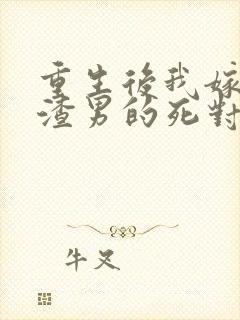 重生後我嫁
渣男的死對
牛叉